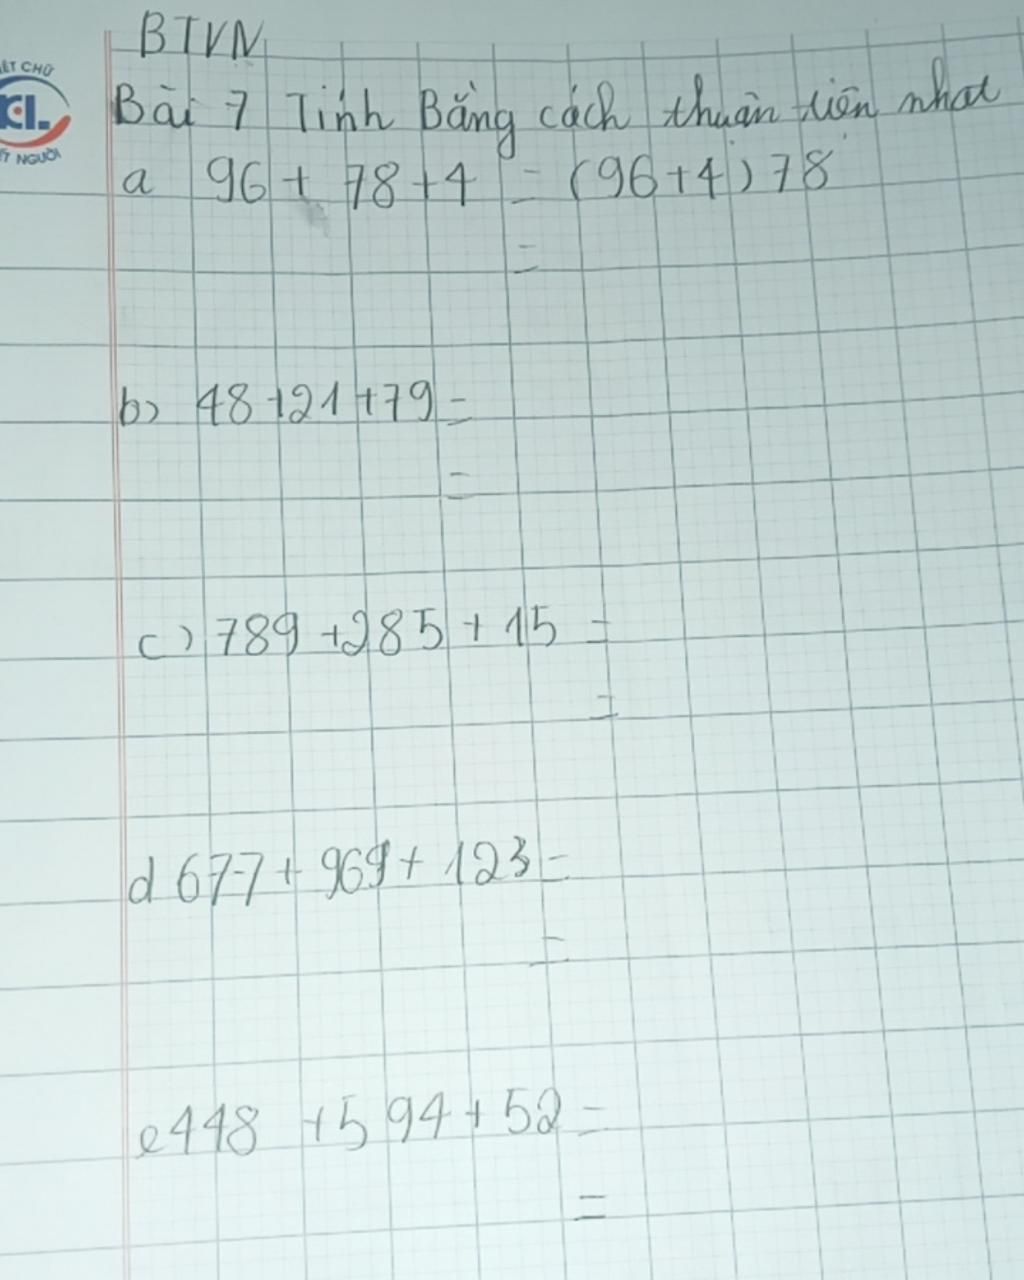 BTVN
ẾT CHỮ
KCL.
ẾT NGƯỜI
Bài 7 Tính Bằng cách thuận tiện nhat
a 96 + 78 + 4 = (96 + 4) 78
=
b) 48 + 21 + 79 =
=
c) 789 + 285 + 15 =
=
d 677 + 969 + 123 =
=
e 448 + 594 + 52 =
=